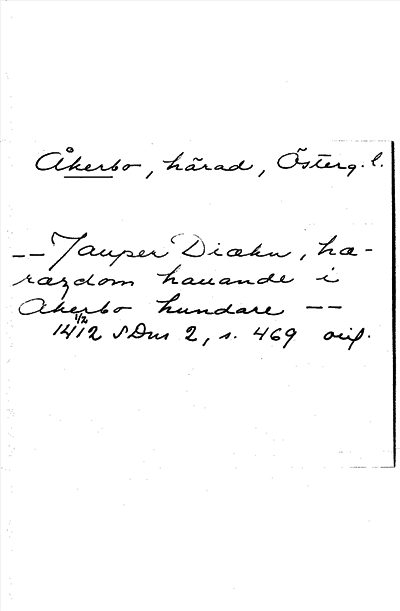 Åkerbo, härad, Österg. l.
-- Jauper Diækn, hæ-
razdom hauande i
Akerbo hundare --
1/2
1412 SDns 2, s. 469 orig.